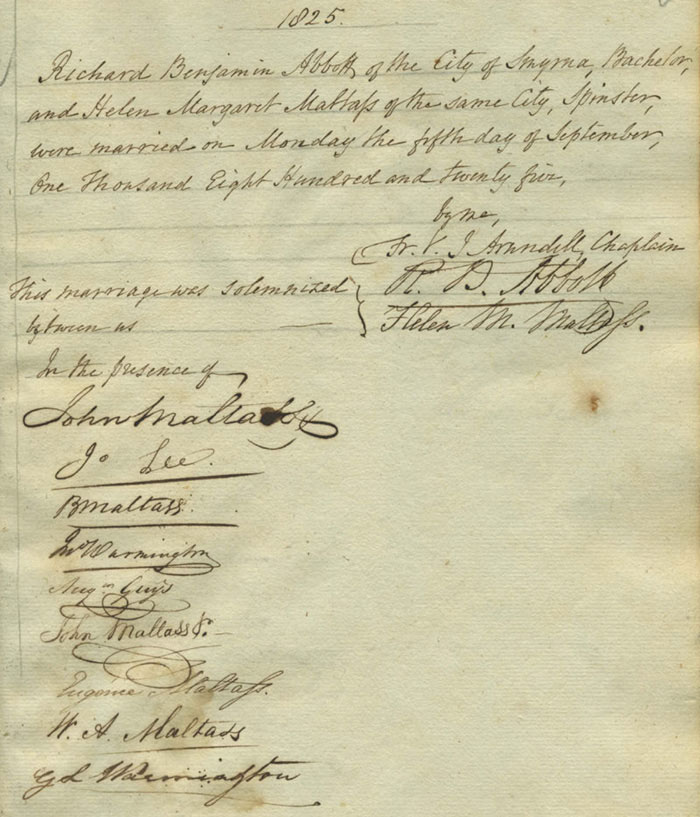 1825.
Richard Benjamin Abbott of the City of Smyrna, Bachelor,
and Helen Margaret Maltass of the same City, Spinster,
were married on Monday the fifth day of September,
One Thousand Eight Hundred and twenty five,
by me,
Fr. V. J. Arundell, Chaplain
This marriage was solemnized
between us
R. B. Abbott
Helen M. Maltass.
In the presence of
John Maltass
Jo Lee.
B Maltass.
Jno Warmington
Augin Guys
John Maltass Jr.
Eugenie Maltass.
W. A. Maltass
Warmington